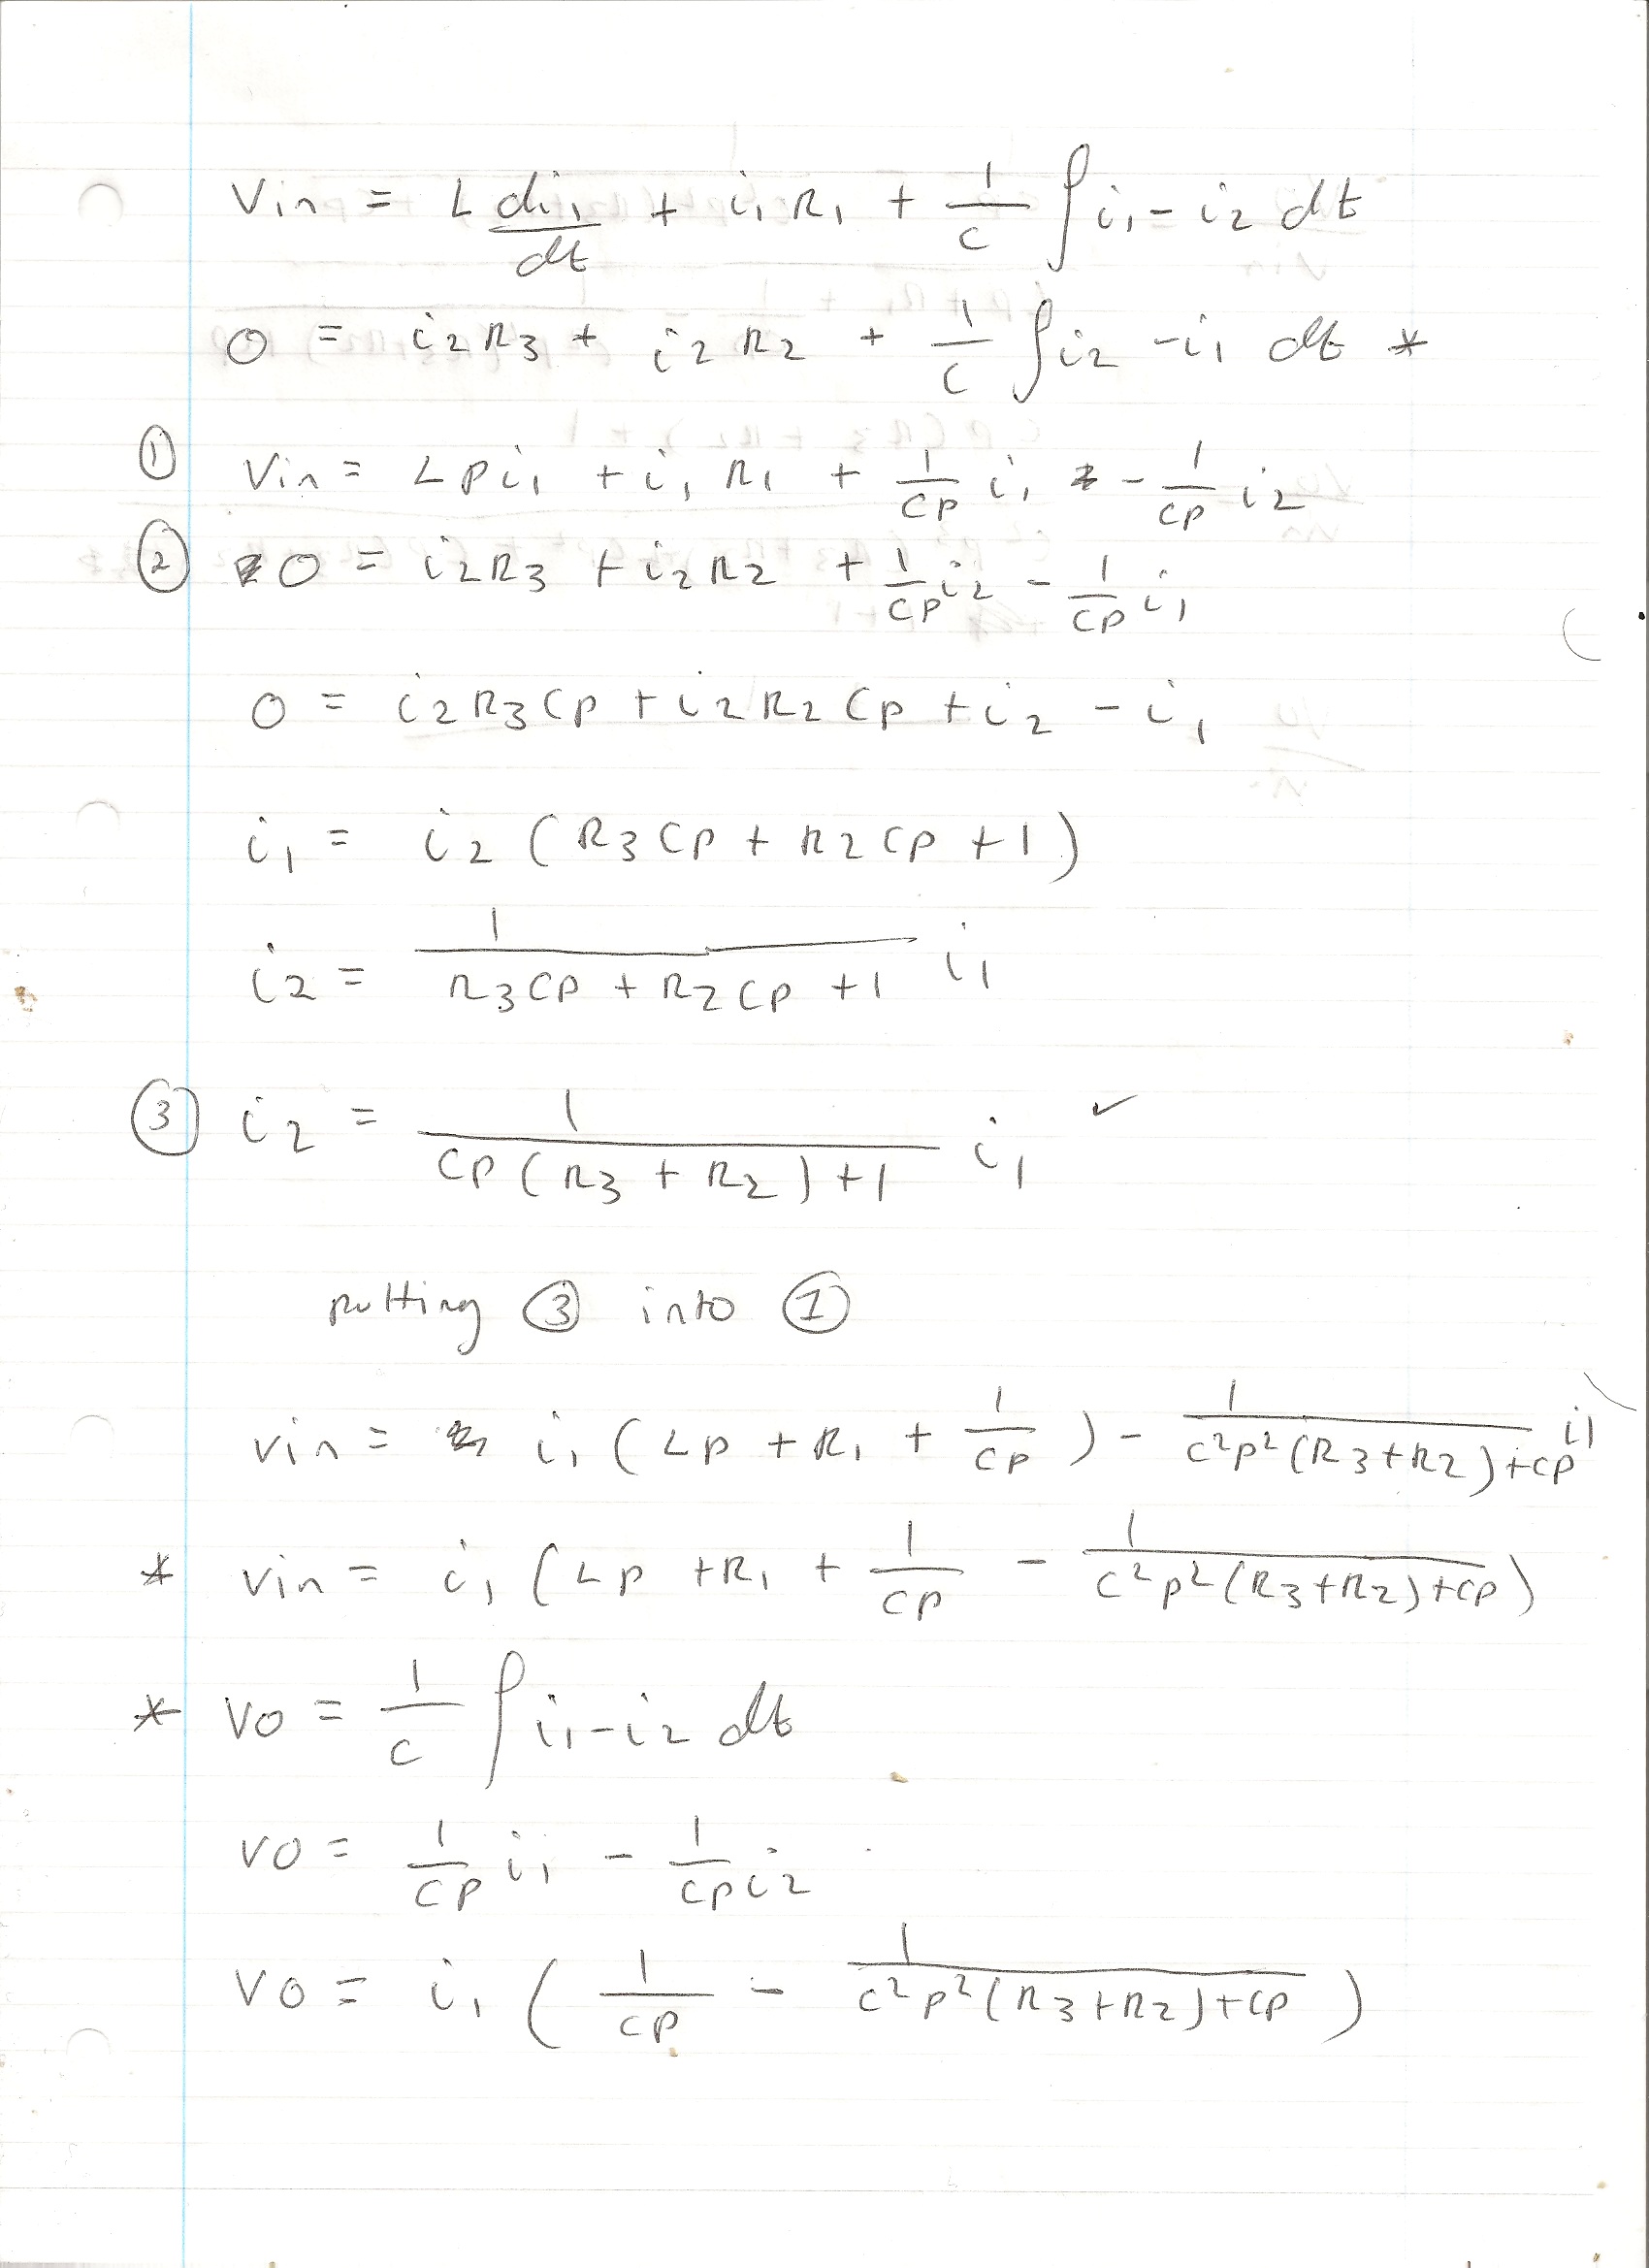 Vin = L di₁/dt + i₁ R₁ + 1/c ∫ i₁ - i₂ dt
0 = i₂R₃ + i₂ R₂ + 1/c ∫ i₂ - i₁ dt *
① Vin = Lpi₁ + i₁ R₁ + 1/cp i₁ - 1/cp i₂
② 0 = i₂R₃ + i₂R₂ + 1/cp i₂ - 1/cp i₁
0 = i₂R₃cp + i₂R₂cp + i₂ - i₁
i₁ = i₂ (R₃cp + R₂cp + 1)
i₂ = 1/(R₃cp + R₂cp + 1) i₁
③ i₂ = 1/(cp(R₃ + R₂) + 1) i₁ ✓
putting ③ into ①
vin = i₁ (Lp + R₁ + 1/cp) - 1/(c²p²(R₃+R₂)+cp) i₁
* vin = i₁ (Lp + R₁ + 1/cp - 1/(c²p²(R₃+R₂)+cp))
* vo = 1/c ∫ i₁-i₂ dt
vo = 1/cp i₁ - 1/cp i₂
vo = i₁ (1/cp - 1/(c²p²(R₃+R₂)+cp))